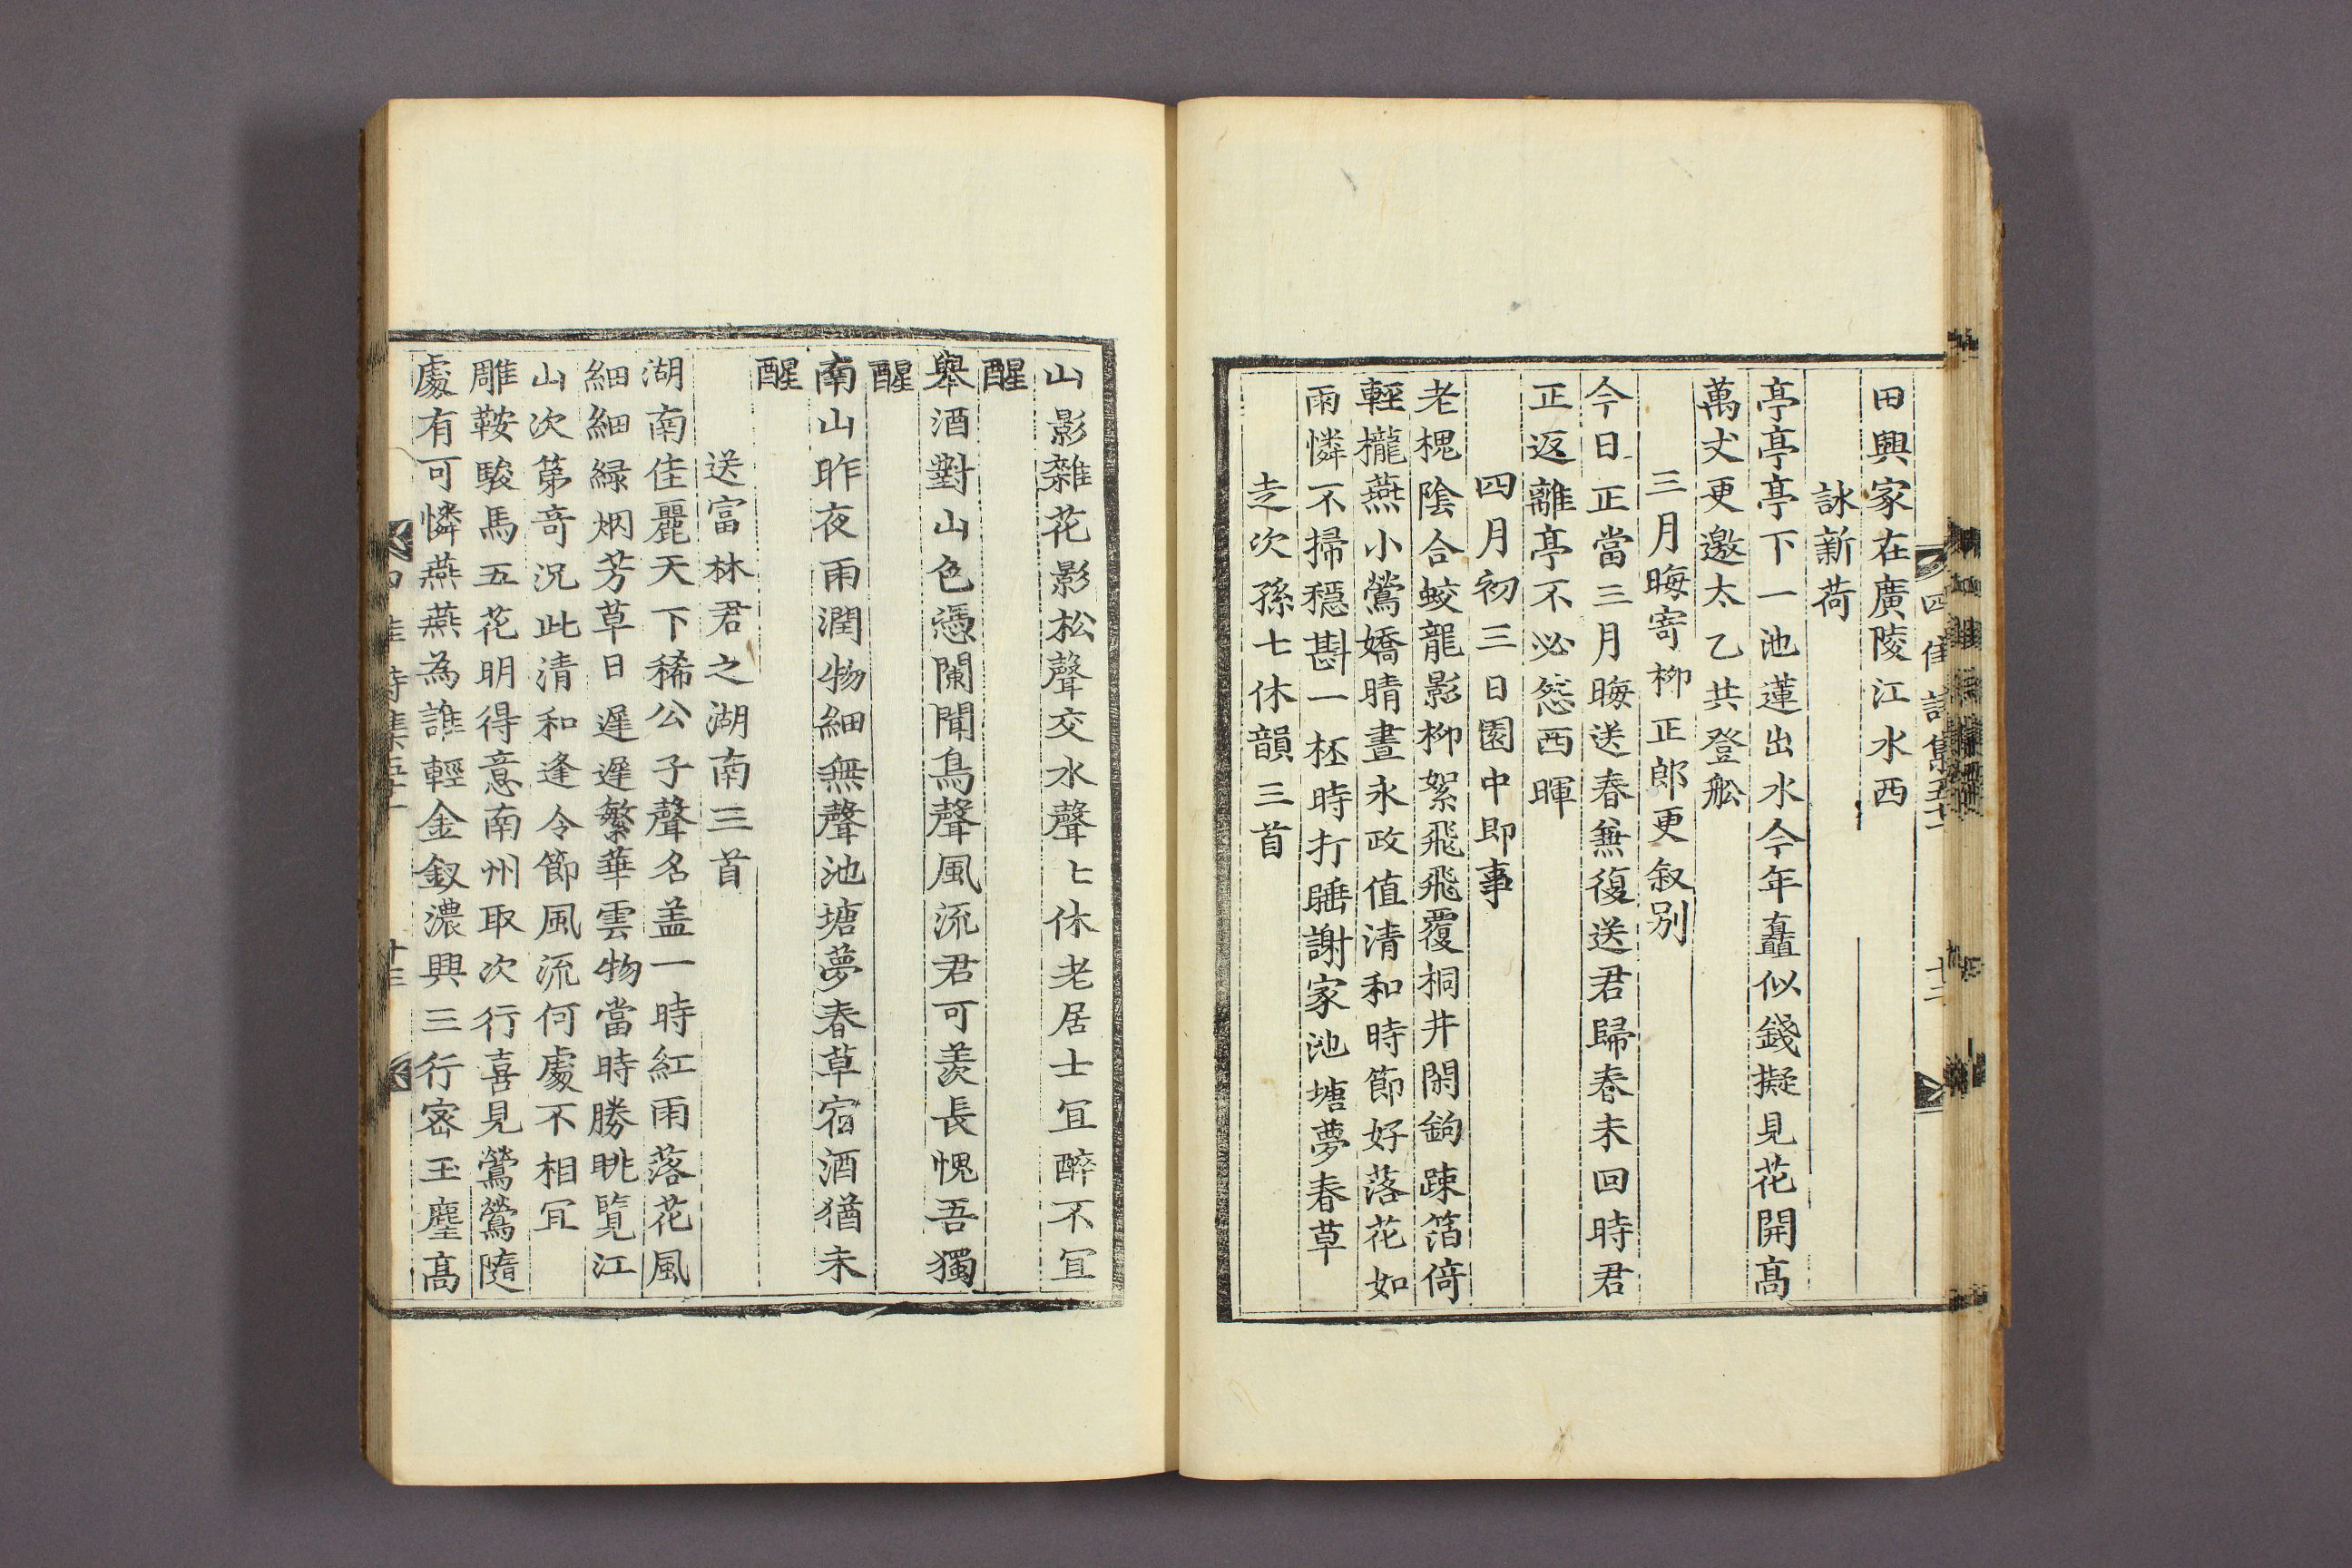 四佳詩集五十一 十二
田興家在廣陵江水西
詠新荷
亭亭亭下一池蓮出水今年矗似錢擬見花開高
萬丈更邀太乙共登舩
三月晦寄柳正郎更叙別
今日正當三月晦送春無復送君歸春未回時君
正返離亭不必怨西暉
四月初三日園中即事
老槐陰合蛟龍影柳絮飛飛覆桐井閑鉤踈箔倚
輕櫳燕小鶯嬌晴晝永政值清和時節好落花如
雨憐不掃穩斟一杯時打睡謝家池塘夢春草
走次孫七休韻三首
山影雜花影松聲交水聲七休老居士冝醉不冝
醒
舉酒對山色憑闌聞鳥聲風流君可羨長愧吾獨
醒
南山昨夜雨潤物細無聲池塘夢春草宿酒猶未
醒
送富林君之湖南三首
湖南佳麗天下稀公子聲名盖一時紅雨落花風
細細緑烟芳草日遲遲繁華雲物當時勝眺覧江
山次第奇況此清和逢令節風流何處不相冝
雕鞍駿馬五花明得意南州取次行喜見鶯鶯隨
處有可憐燕燕為誰輕金釵濃興三行密玉麈高
十三